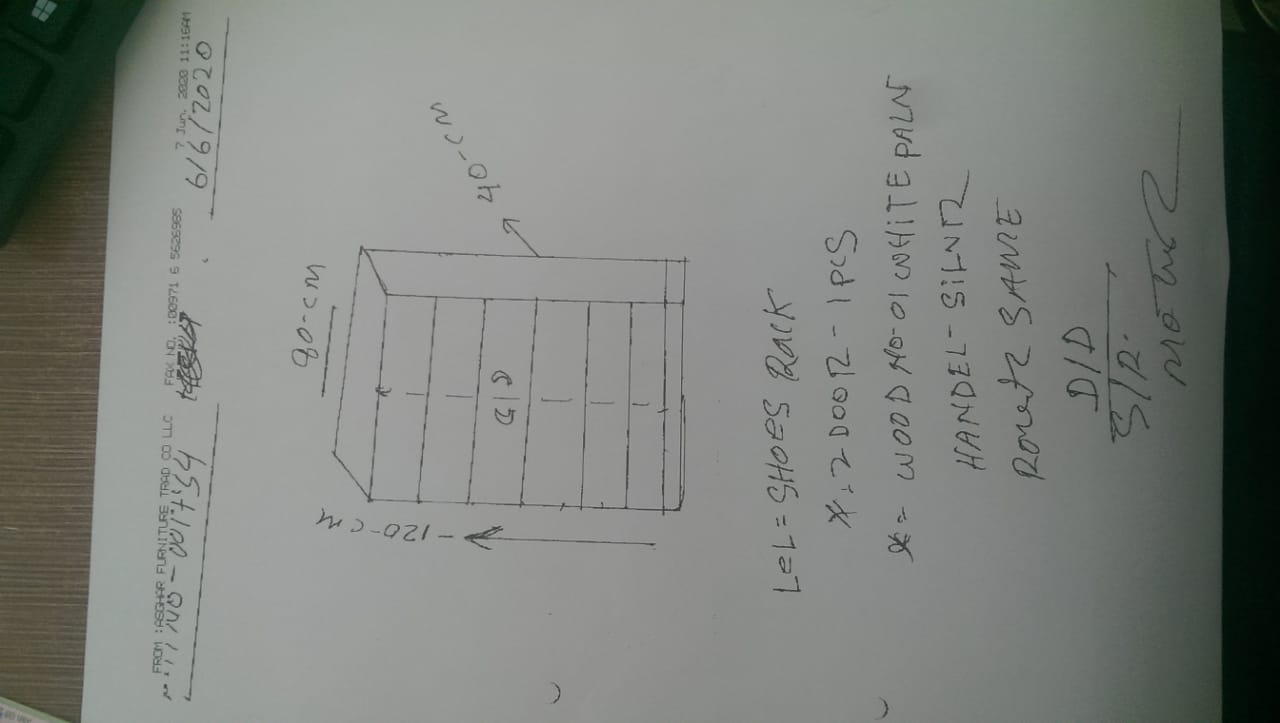 FROM :ASGHAR FURNITURE TRAD CO LLC FAX NO. :00971 6 5626985 7 Jun. 2020 11:16AM
NO-001754 6/6/2020
80-CM
120-CM
40-CM
LeL= SHOES RaCK
*. 2 DOOR - 1 PCS
*= WOOD NO-01 WHITE PALN
HANDEL- SILVER
SAME
D/D
S/R.